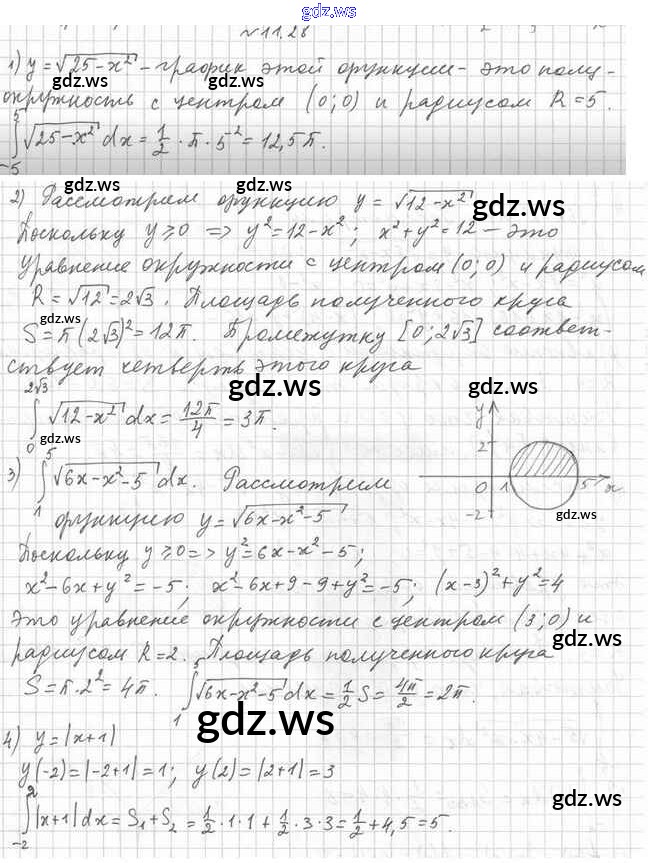 gdz.ws
№11.28
1) y = √25-x² - график этой функции - это полу-
gdz.ws
окружность с центром (0;0) и радиусом R = 5.
∫₋₅⁵ √25-x² dx = 1/2 · π · 5⁻² = 12,5π.
gdz.ws
gdz.ws
2) Рассмотрим функцию y = √12-x²
gdz.ws
Поскольку y ⩾ 0 => y² = 12-x²; x²+y² = 12 - это
уравнение окружности с центром (0; 0) и радиусом
R = √12 = 2√3. Площадь полученного круга
S = π(2√3)² = 12π. Промежутку [0; 2√3] соответ-
gdz.ws
ствует четверть этого круга
gdz.ws
gdz.ws
∫₀^2√3 √12-x² dx = 12π/4 = 3π.
gdz.ws
y
2
0
1
5
x
-2
gdz.ws
3) ∫₁⁵ √6x-x²-5 dx. Рассмотрим
функцию y = √6x-x²-5
Поскольку y ⩾ 0 => y² = 6x-x²-5;
gdz.ws
x²-6x+y² = -5; x²-6x+9-9+y² = -5; (x-3)²+y² = 4
Это уравнение окружности с центром (3; 0) и
gdz.ws
радиусом R = 2. Площадь полученного круга
S = π·2² = 4π. ∫₁⁵ √6x-x²-5 dx = 1/2 S = 4π/2 = 2π.
gdz.ws
gdz.ws
4) y = |x+1|
y(-2) = |-2+1| = 1; y(2) = |2+1| = 3
gdz.ws
∫₋₂² |x+1| dx = S₁+S₂ = 1/2·1·1 + 1/2·3·3 = 1/2 + 4,5 = 5.
gdz.ws
gdz.ws